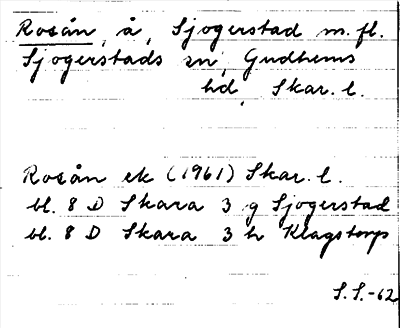 Rosån, å, Sjogerstad m.fl.
Sjogerstads sn, Gudhems
hd, Skar. l.
Rosån ek (1961) Skar. l.
bl. 8 D Skara 3 g Sjogerstad
bl. 8 D Skara 3 h Klagstorp
S.S.-62